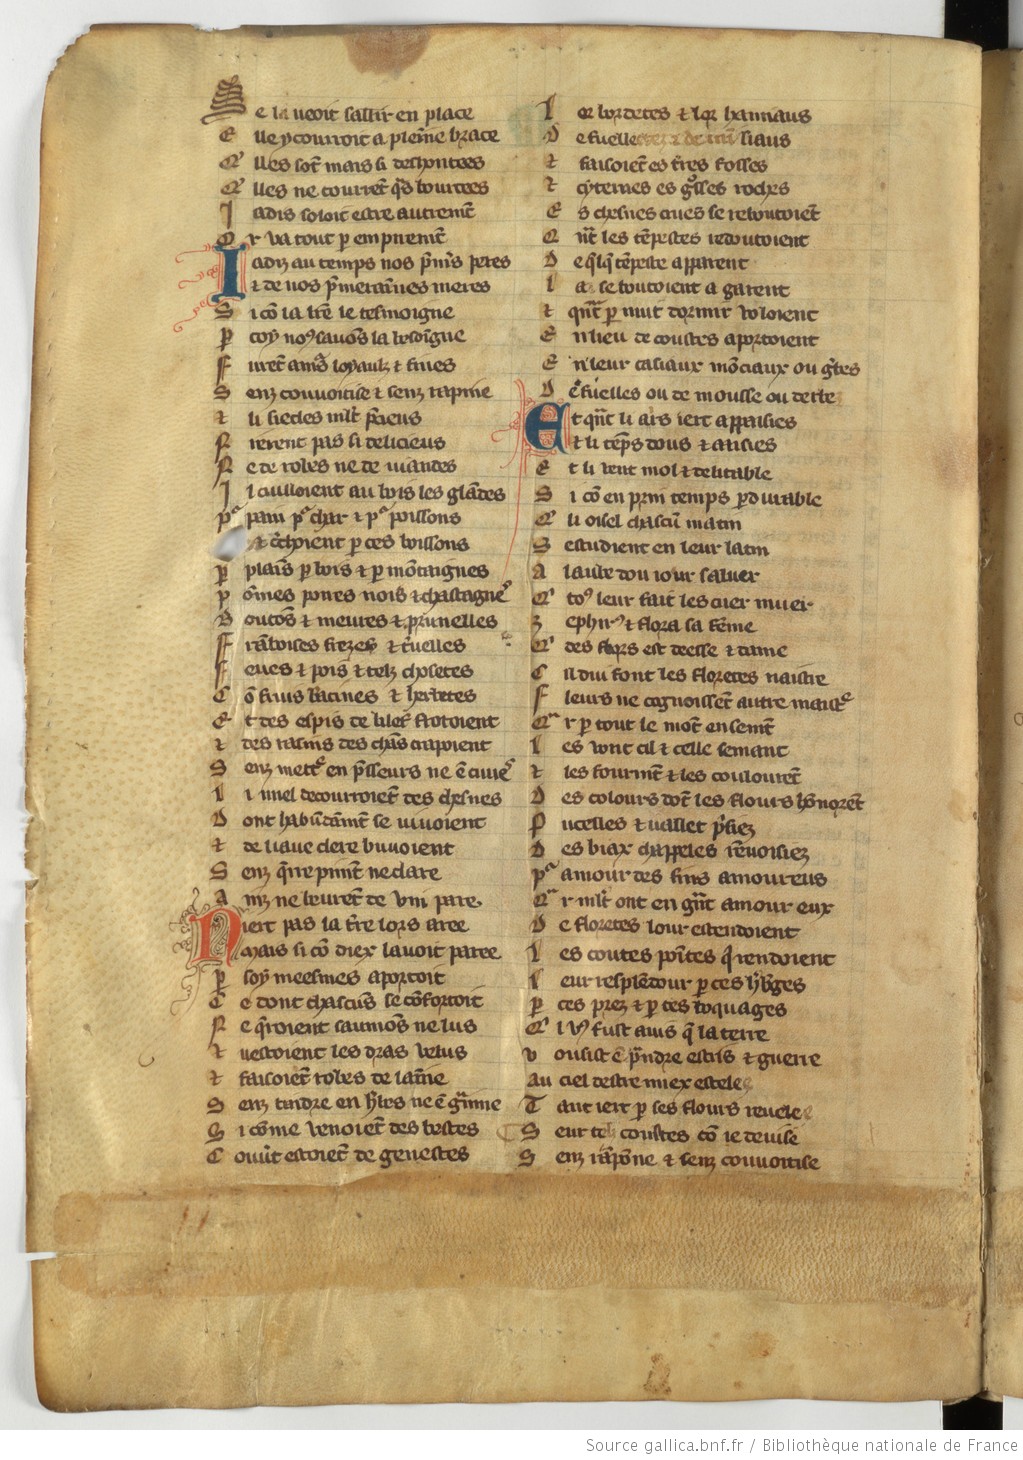 Se la veoit saillir en place
E lle y courroit a pleine brace
E lles sōt mais si deshontees
E lles ne courrēt q̄ds bourcees
J adis soloit estre autremēt
O r va tout p empiremēt
I adiz au temps nos p̄miͬs peres
⁊ de nos p̄meraīnes meres
S i cō la lr̄e le tesmoigne
P coy noꝰ savōs la besōigne
F urēt amͬs loyaulz ⁊ fines
S enz convoitise ⁊ senz rapine
⁊ li siecles ml̄t p̄cieus
N ierent pas si delicieus
N e de robes ne de viandes
J l cuilloient au bois les glādes
pͣ pain pͣ char ⁊ pͣ poissons
⁊ c̄choient p ces boissons
p plaīs p bois ⁊ p mōtaignes
p ōmes poires nois ⁊ chastagneˢ
B outōs ⁊ meures ⁊ prunelles
F rāboises frezes ⁊ c̄uelles
F eves ⁊ pois ⁊ telz chosetes
C ō fruis racines ⁊ herbetes
E t des espis de blef frotoient
⁊ des rasins des chās crapoient
S enz mettͤ en p̄sseurs ne ē cuueˢ
L i miel decourroiēt des chesnes
D ont habūdāmt se vivoient
⁊ de liaue clere buvoient
S enz q̄rre pimēt ne clare
A inz ne beurēt de vin pare
N iert pas la tr̄e lors aree
mais si cō diex lavoit paree
p soy meesmes aportoit
C e dont chascūs se cōfortoit
N e q̄roient saumōs ne lus
⁊ vestoient les dras velus
⁊ faisoiēt robes de laine
S enz tindre en h̄bes ne ē grāine
S i cōme venoiēt des bestes
C ouūt estoiēt de genestes
L or bordetes ⁊ lor hamiaus
D e fuelles
⁊ faisoiēt es tr̄es fosses
⁊ cyternes es gͦsses roches
E s chesnes crues se reboutoiēt
Q nt̄ les tēpestes redoutoient
D e q̄lq̄ tēpeste apparent
L a se boutoient a garent
⁊ qn̄t p nuit dormir voloient
E n lieu de coustes aportoient
E n leur casiaux mōciaux ou gͤbes
D e fuelles ou de mousse ou derbe
Et qn̄t li airs iert appaisies
⁊ li tēps dous ⁊ aaisies
E t li vent mol ⁊ delitable
S i cō en prin temps pdurable
Q li oisel chascū matin
S estudient en leur latin
A laube dou jour saluer
Q toꝰ leur fait les cuer muer
Z ephirꝰ ⁊ flora sa fēme
Q des flors est deesse ⁊ dame
C il dui font les floretes naistre
F leurs ne cognoissēt autre maistͤ
Qͣ r p tout le mōt ensemēt
L es vont cil ⁊ celle semant
⁊ les formēt ⁊ les coulourēt
D es colours dōt les flours hōnorēt
P ucelles ⁊ vallet prisiez
D es biax chappeles rēvoisiez
pͣ amour des fins amoureus
Qͣ r ml̄t ont en gn̄t amour eux
D e floretes lour estendoient
L es coutes pointes q̄ rendoient
L eur resplēdour p ces h̄bges
P ces prez ⁊ p ces boquages
Q l vꝰ fust avis q̄ la terre
v ousist ē p̄ndre estris ⁊ guerre
Au ciel destre miex estelee
T ant iert p ses flours revelee
S eur tels coustes cō je devise
S enz rāpōne ⁊ senz convoitise